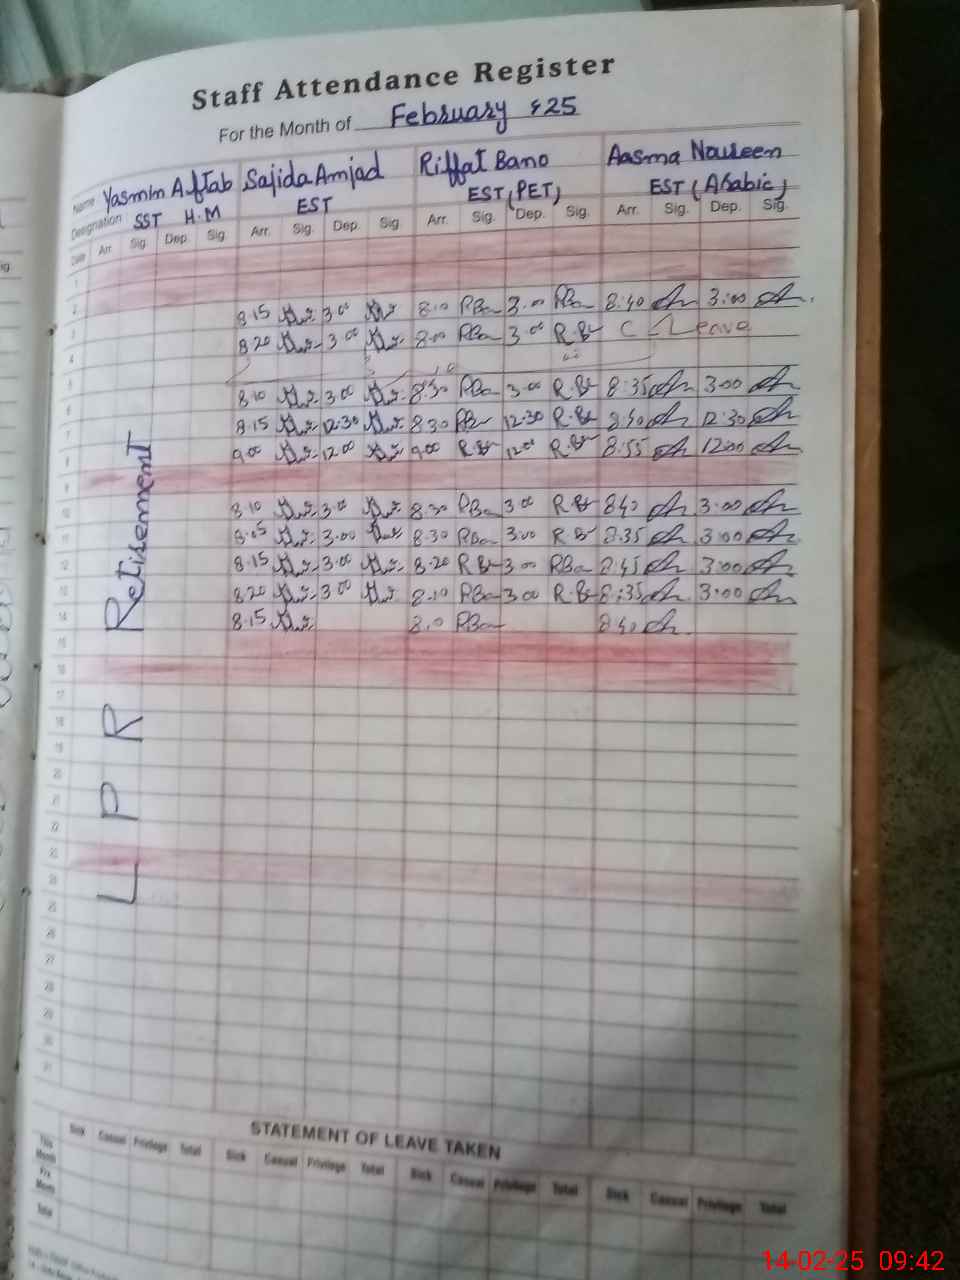 Staff Attendance Register
For the Month of February 25
Name Yasmin Aftab Sajida Amjad Riffat Bano Aasma Nouseen
Designation SST H.M EST EST (PET) EST (Arabic)
Date Arr. Sig. Dep. Sig. Arr. Sig. Dep. Sig. Arr. Sig. Dep. Sig. Arr. Sig. Dep. Sig.
1
2
3 8.15 3.00 8.10 RBa 3.00 RBa 8:40 3:00
4 8.20 3.00 8.00 RBa 3.00 R.B C Leave
5
6 8.10 3.00 8.30 RBa 3.00 R.B 8:35 3.00
7 8.15 12.30 8.30 12.30 R.B 8.40 12:30
8 9.00 12.00 9.00 R.B 12.00 R.B 8:55 12:00
9
10 8.10 3.00 8.30 RBa 3.00 R.B 8.40 3:00
11 3.00 8.30 RBa 3.00 R.B 8.35 3:00
12 8.15 3.00 8.20 R.B 3.00 RBa 8:45 3:00
13 8.20 3.00 8.10 RBa 3.00 R.B 8:35 3:00
14 8.15 RBa 8.40
15
16
17
18
19
20
21
22
23
24
25
26
27
28
29
30
31
L P R Retirement
STATEMENT OF LEAVE TAKEN
Sick Casual Privilege Total Sick Casual Privilege Total Sick Casual Privilege Total Sick Casual Privilege Total
This Month
Pre Month
Total
14-02-25 09:42